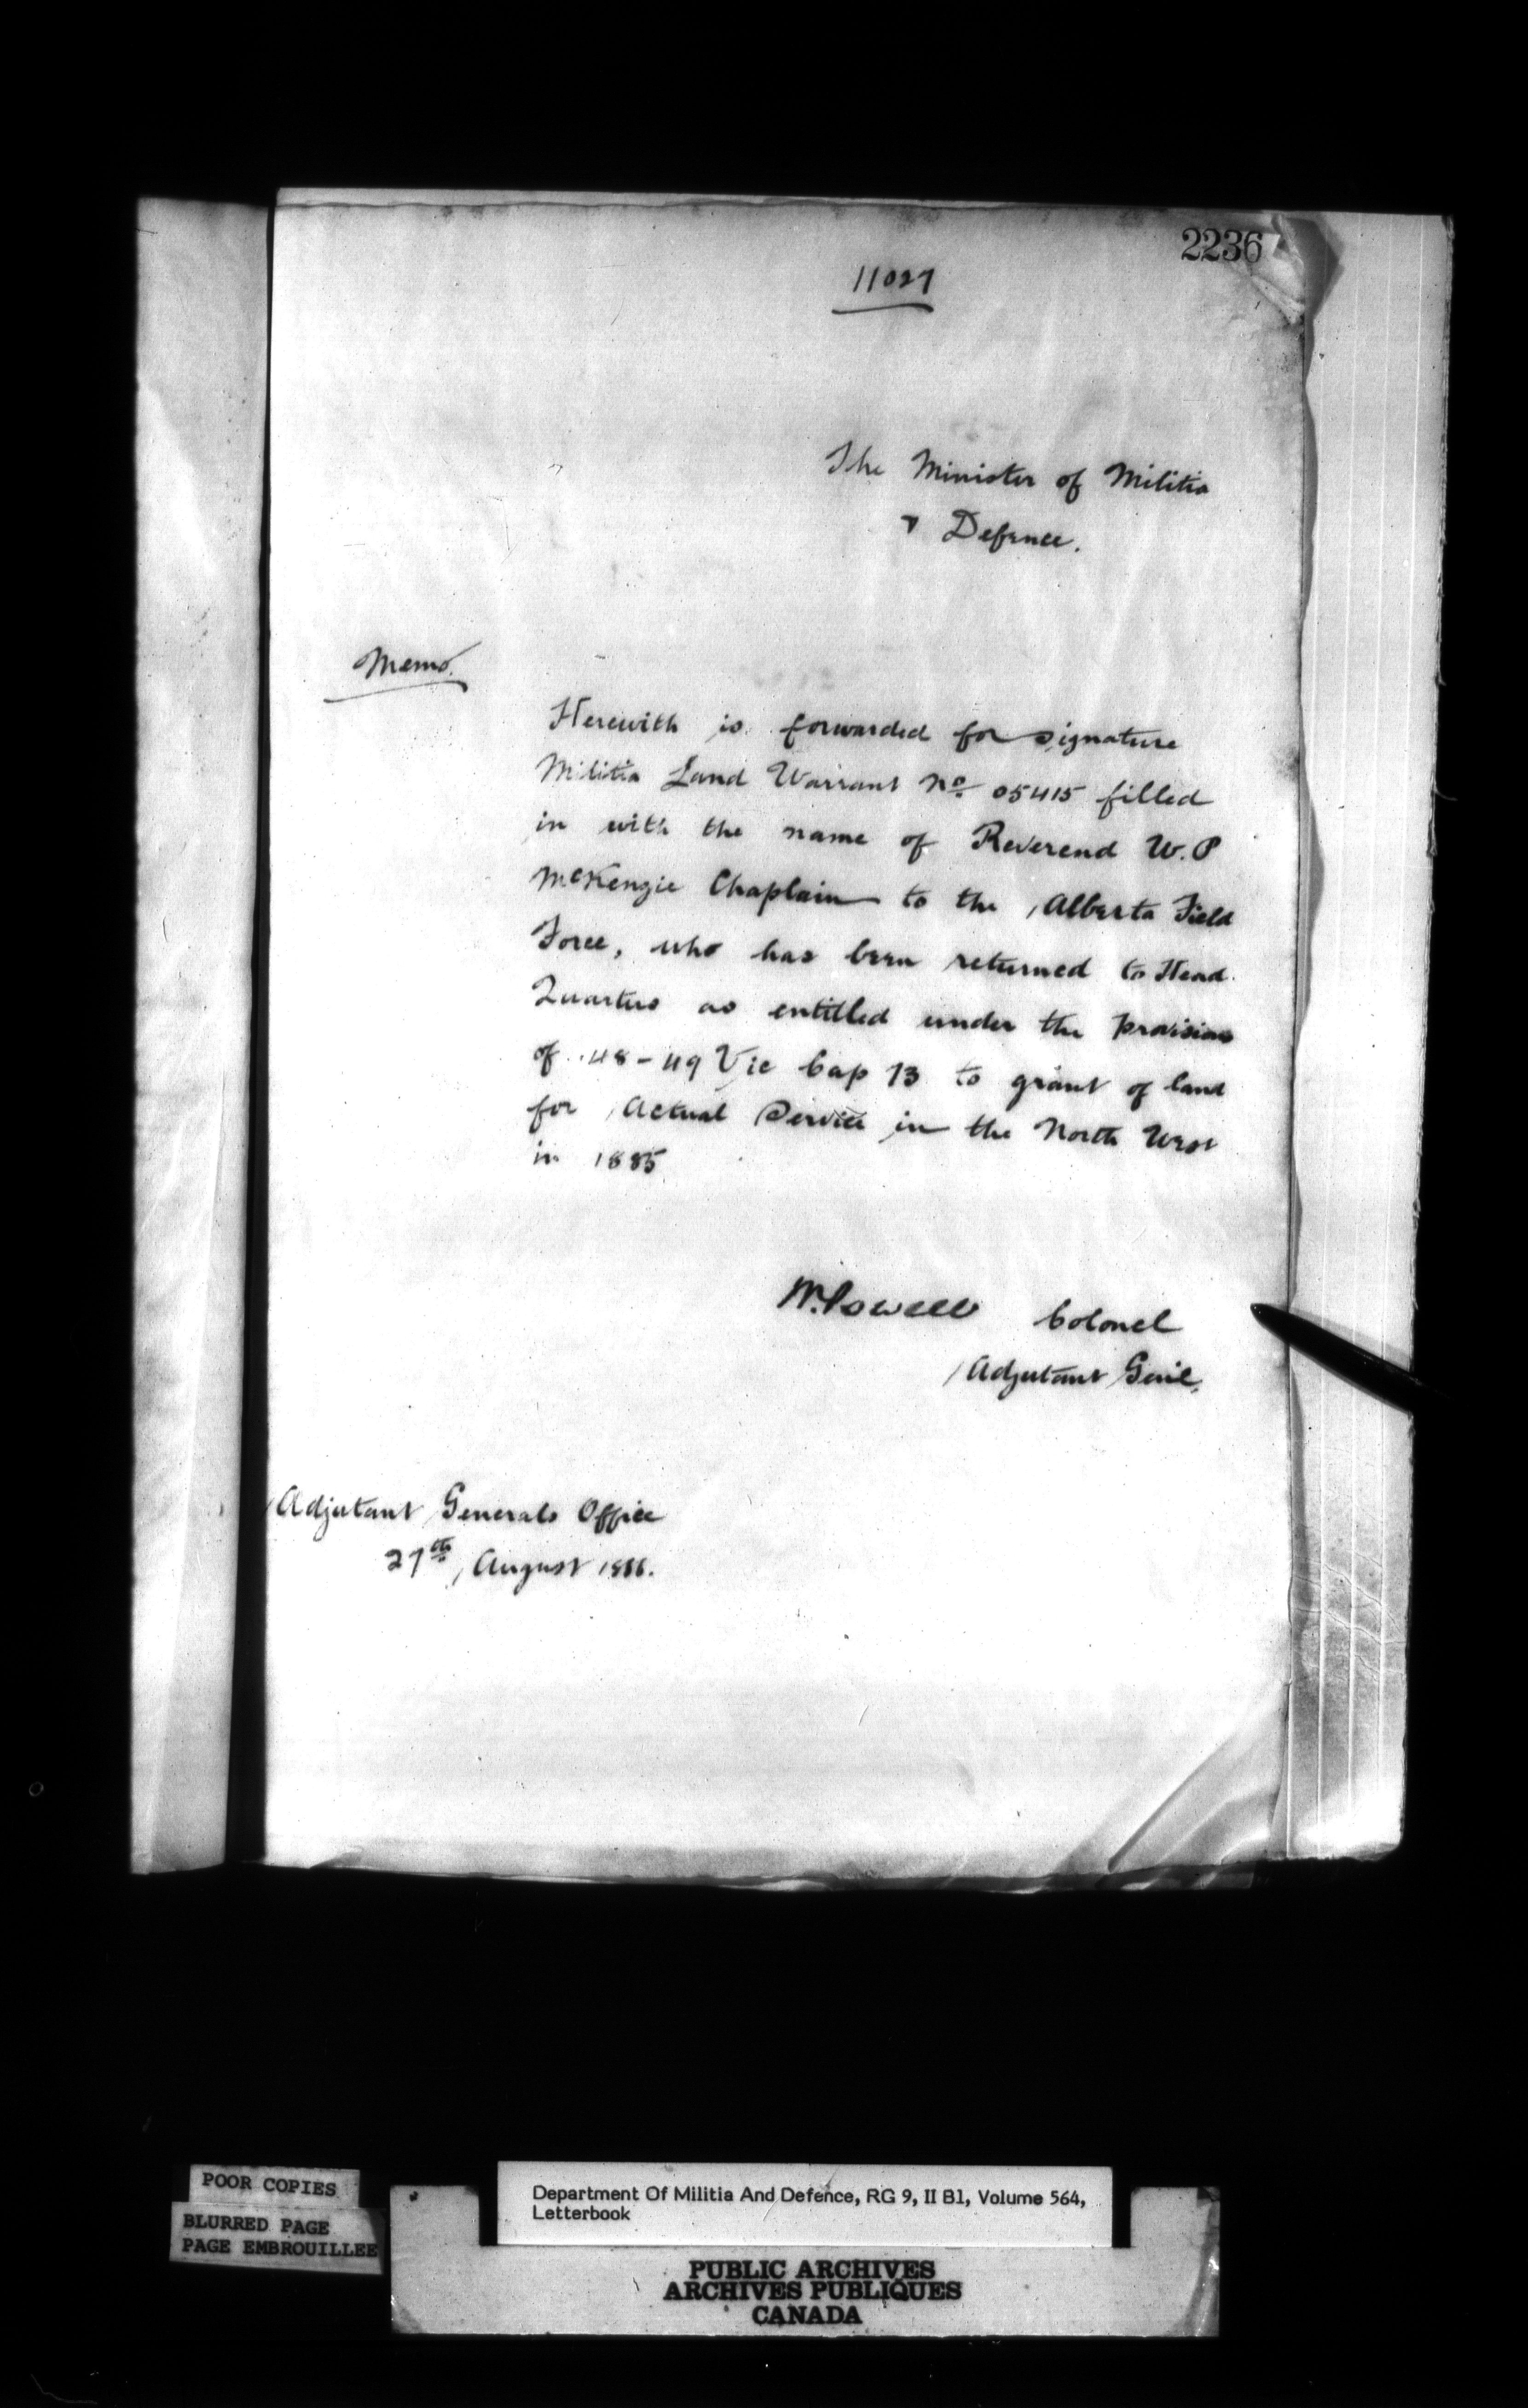 2236
11027
The Minister of Militia
& Defence.
Memo.
Herewith is forwarded for signature
Militia Land Warrant No 05415 filled
in with the name of Reverend W. P
McKenzie Chaplain to the Alberta Field
Force, who has been returned to Head
Quarters as entitled under the provisions
of 48-49 Vic Cap 73 to grant of land
for Actual Service in the North West
in 1885
W. Powell Colonel
Adjutant Genl.
Adjutant Generals Office
27th August 1886.
POOR COPIES
BLURRED PAGE
PAGE EMBROUILLEE
Department Of Militia And Defence, RG 9, II B1, Volume 564,
Letterbook
PUBLIC ARCHIVES
ARCHIVES PUBLIQUES
CANADA